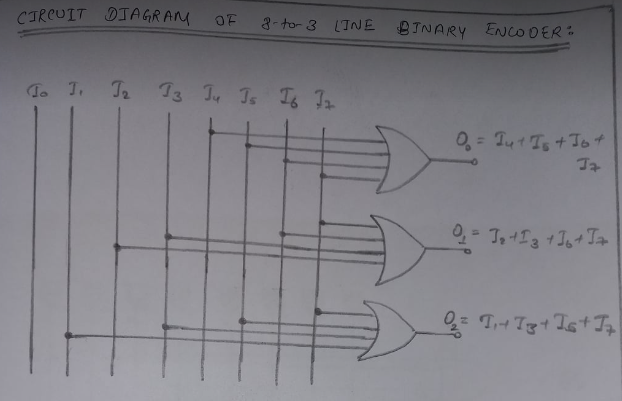 CIRCUIT DIAGRAM OF 8-to-3 LINE BINARY ENCODER:
I₀ I₁ I₂ I₃ I₄ I₅ I₆ I₇
O₀ = I₄ + I₅ + I₆ +
I₇
O₁ = I₂ + I₃ + I₆ + I₇
O₂ = I₁ + I₃ + I₅ + I₇